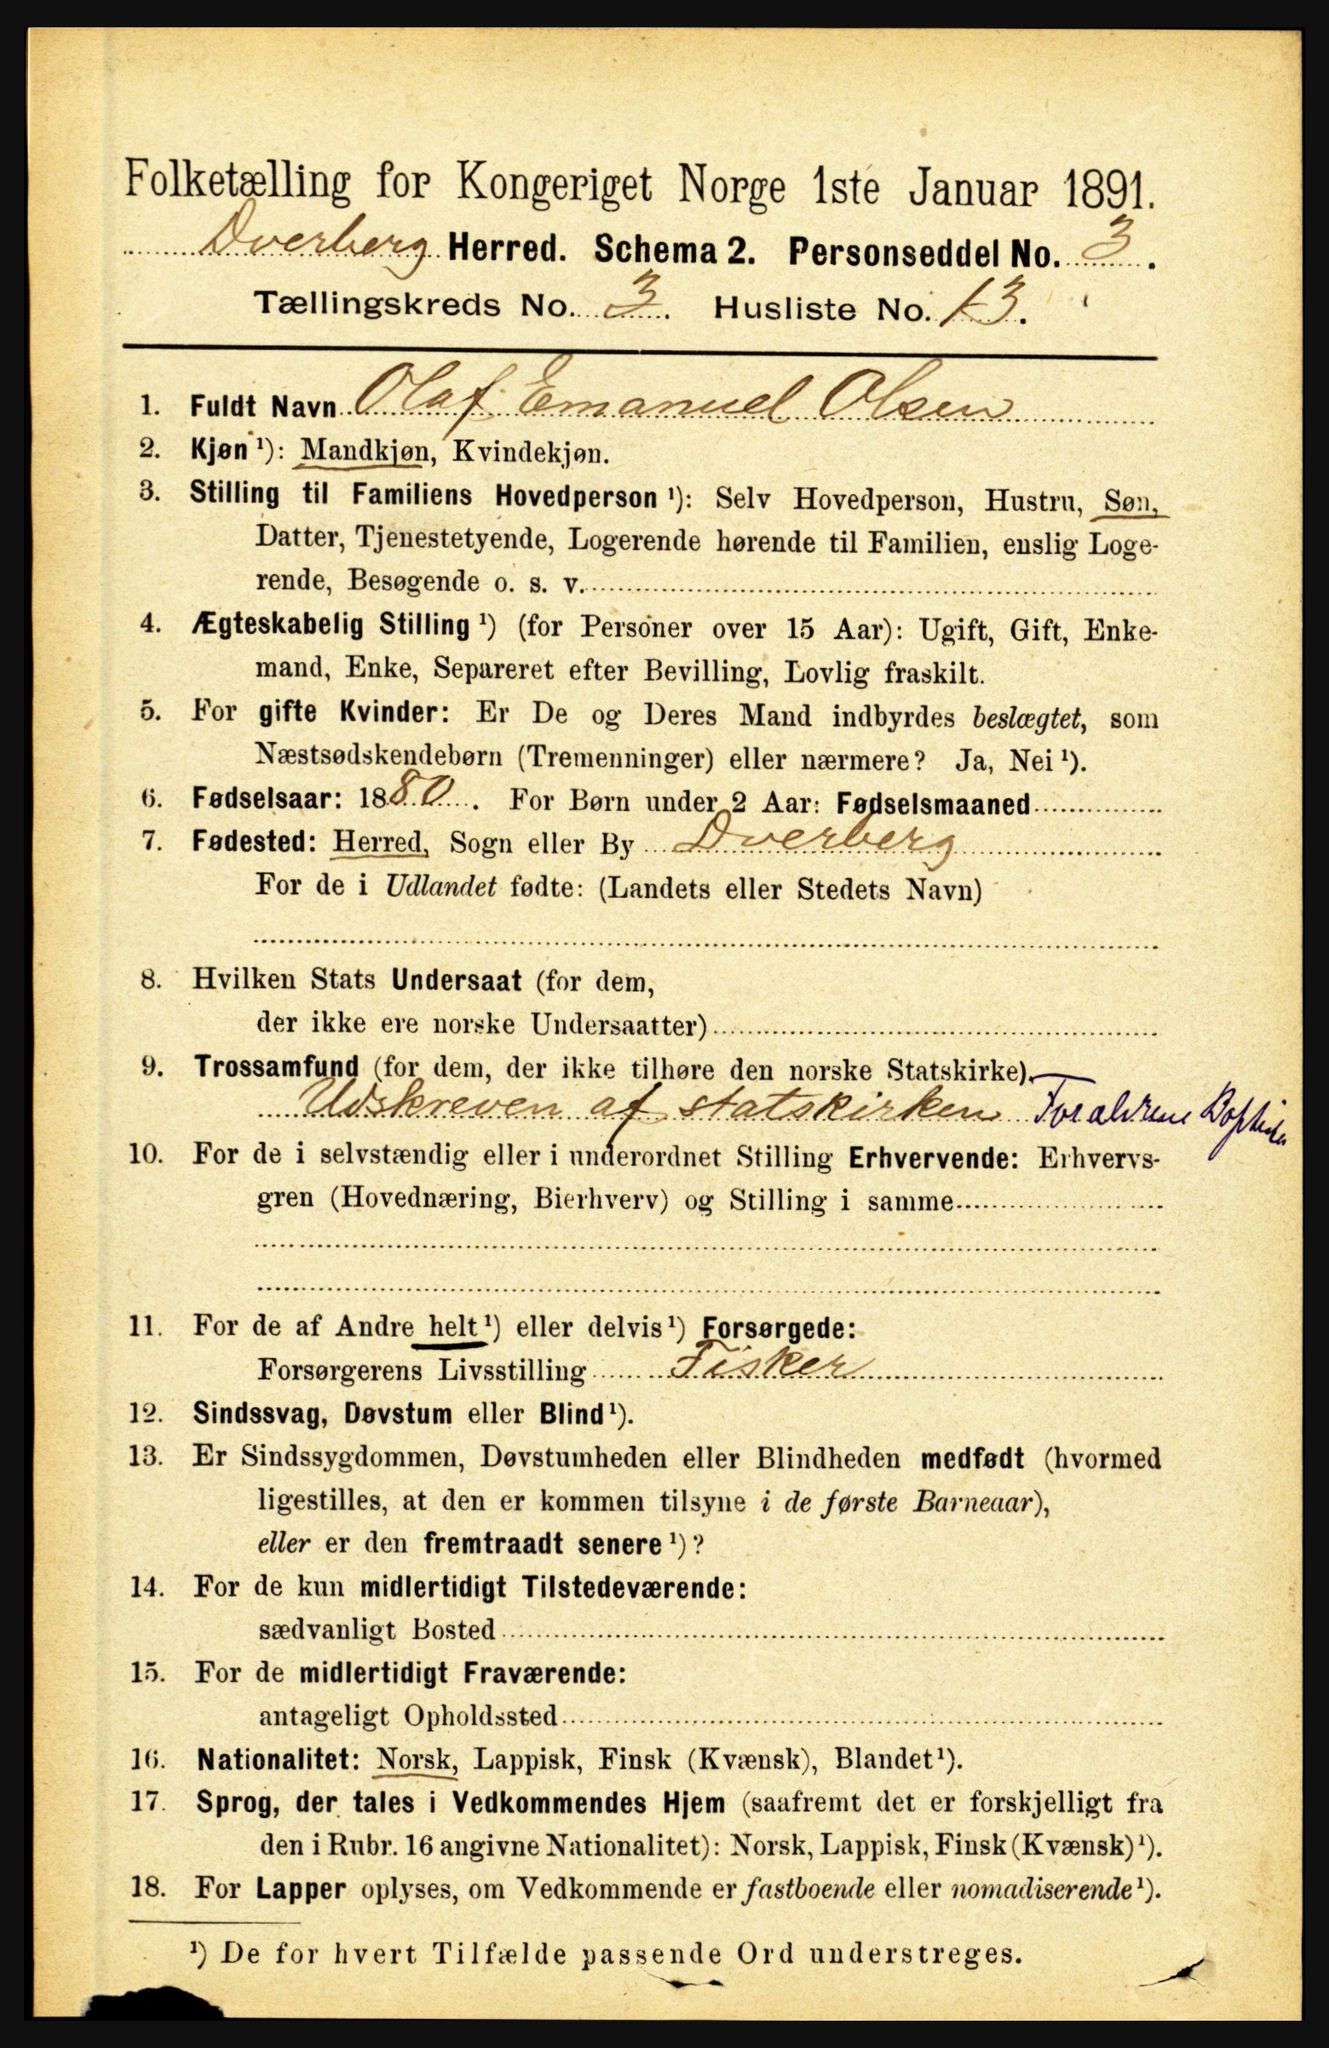 Folketælling for Kongeriget Norge 1ste Januar 1891.
Dverberg Herred. Schema 2. Personseddel No. 3.
Tællingskreds No. 3. Husliste No. 13.
1. Fuldt Navn Olaf Emanuel Olsen
2. Kjøn ¹): Mandkjøn, Kvindekjøn.
3. Stilling til Familiens Hovedperson ¹): Selv Hovedperson, Hustru, Søn,
Datter, Tjenestetyende, Logerende hørende til Familien, enslig Loge-
rende, Besøgende o. s. v.
4. Ægteskabelig Stilling ¹) (for Personer over 15 Aar): Ugift, Gift, Enke-
mand, Enke, Separeret efter Bevilling, Lovlig fraskilt.
5. For gifte Kvinder: Er De og Deres Mand indbyrdes beslægtet, som
Næstsødskendebørn (Tremenninger) eller nærmere? Ja, Nei ¹).
6. Fødselsaar: 1880. For Børn under 2 Aar: Fødselsmaaned
7. Fødested: Herred, Sogn eller By Dverberg
For de i Udlandet fødte: (Landets eller Stedets Navn)
8. Hvilken Stats Undersaat (for dem,
der ikke ere norske Undersaatter)
9. Trossamfund (for dem, der ikke tilhøre den norske Statskirke)
Udskreven af statskirken Forældrene
10. For de i selvstændig eller i underordnet Stilling Erhvervende: Erhvervs-
gren (Hovednæring, Bierhverv) og Stilling i samme
11. For de af Andre helt ¹) eller delvis ¹) Forsørgede:
Forsørgerens Livsstilling Fisker
12. Sindssvag, Døvstum eller Blind ¹).
13. Er Sindssygdommen, Døvstumheden eller Blindheden medfødt (hvormed
ligestilles, at den er kommen tilsyne i de første Barneaar),
eller er den fremtraadt senere ¹)?
14. For de kun midlertidigt Tilstedeværende:
sædvanligt Bosted
15. For de midlertidigt Fraværende:
antageligt Opholdssted
16. Nationalitet: Norsk, Lappisk, Finsk (Kvænsk), Blandet ¹).
17. Sprog, der tales i Vedkommendes Hjem (saafremt det er forskjelligt fra
den i Rubr. 16 angivne Nationalitet): Norsk, Lappisk, Finsk (Kvænsk) ¹).
18. For Lapper oplyses, om Vedkommende er fastboende eller nomadiserende ¹).
¹) De for hvert Tilfælde passende Ord understreges.